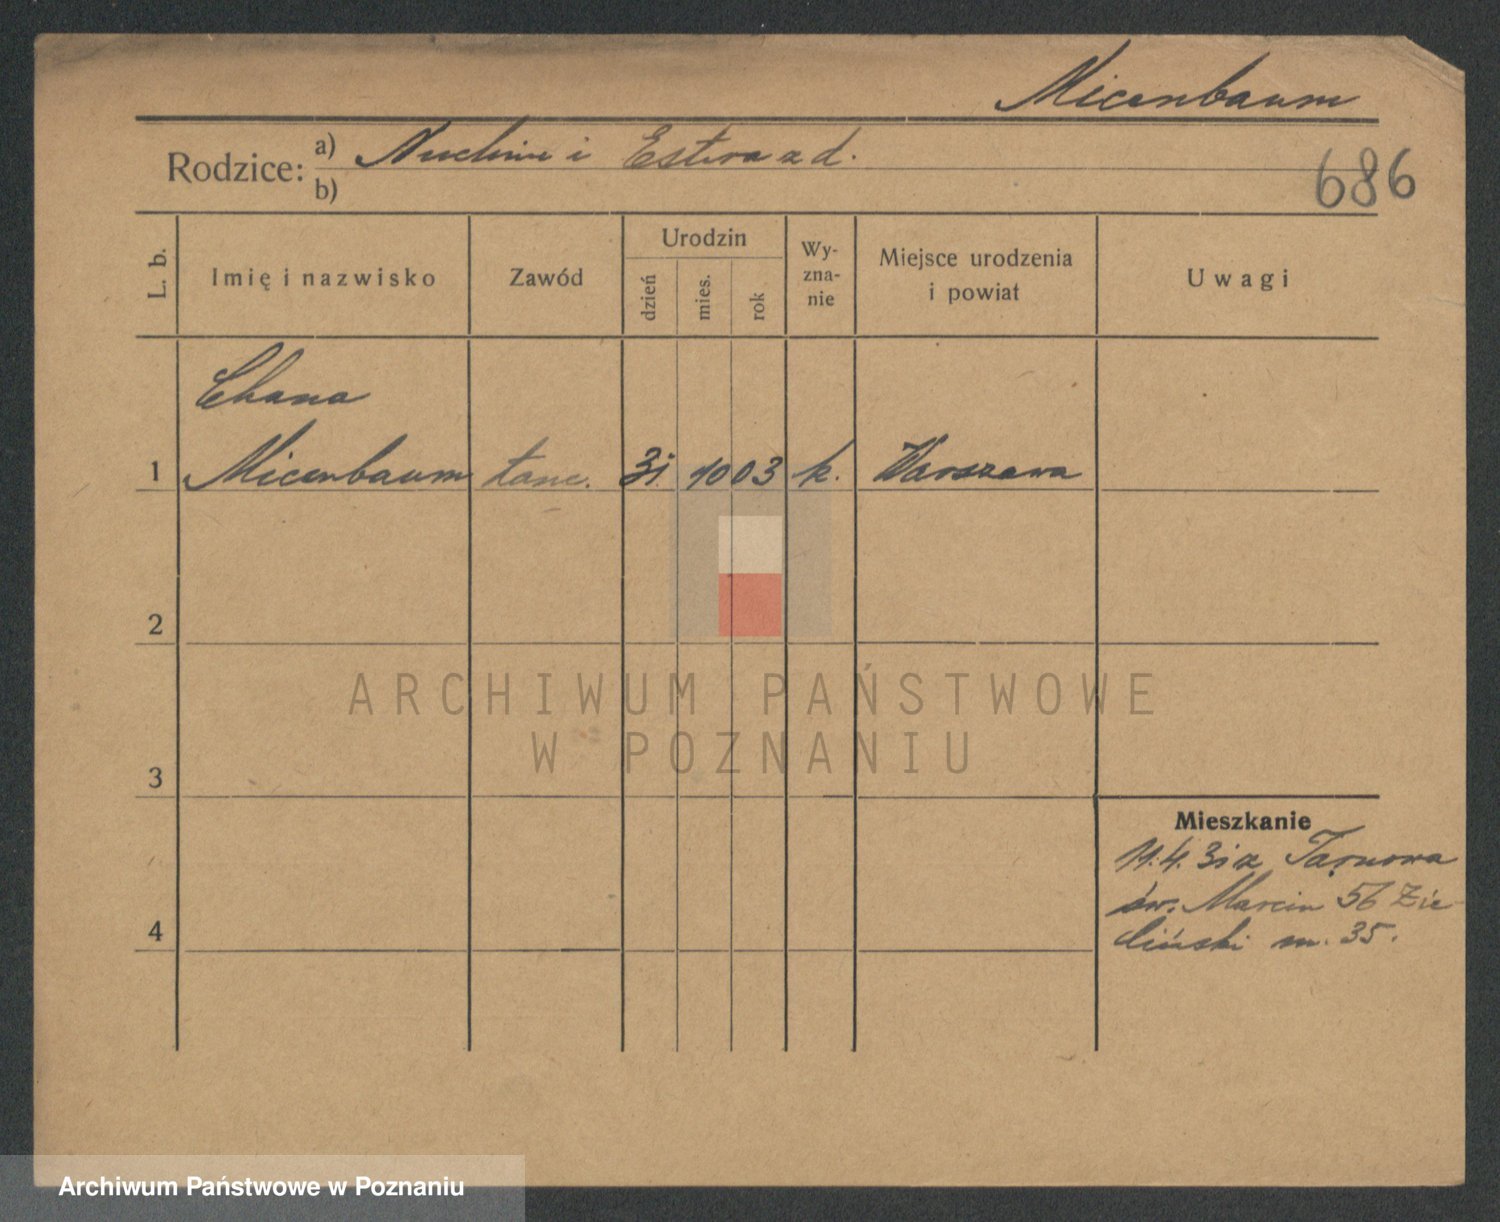 Micenbaum
Rodzice: a) Nuchim i Estera z d.
b)
686
L. b.
Imię i nazwisko
Zawód
Urodzin
dzień
mies.
rok
Wy-
zna-
nie
Miejsce urodzenia
i powiat
Uwagi
Chana
1 Micenbaum tanc. 31. 10 03 k. Warszawa
2
ARCHIWUM PAŃSTWOWE
W POZNANIU
3
Mieszkanie
11.4. 31 z Tarnowa
św. Marcin 56 Zie-
liński m. 35.
4
Archiwum Państwowe w Poznaniu